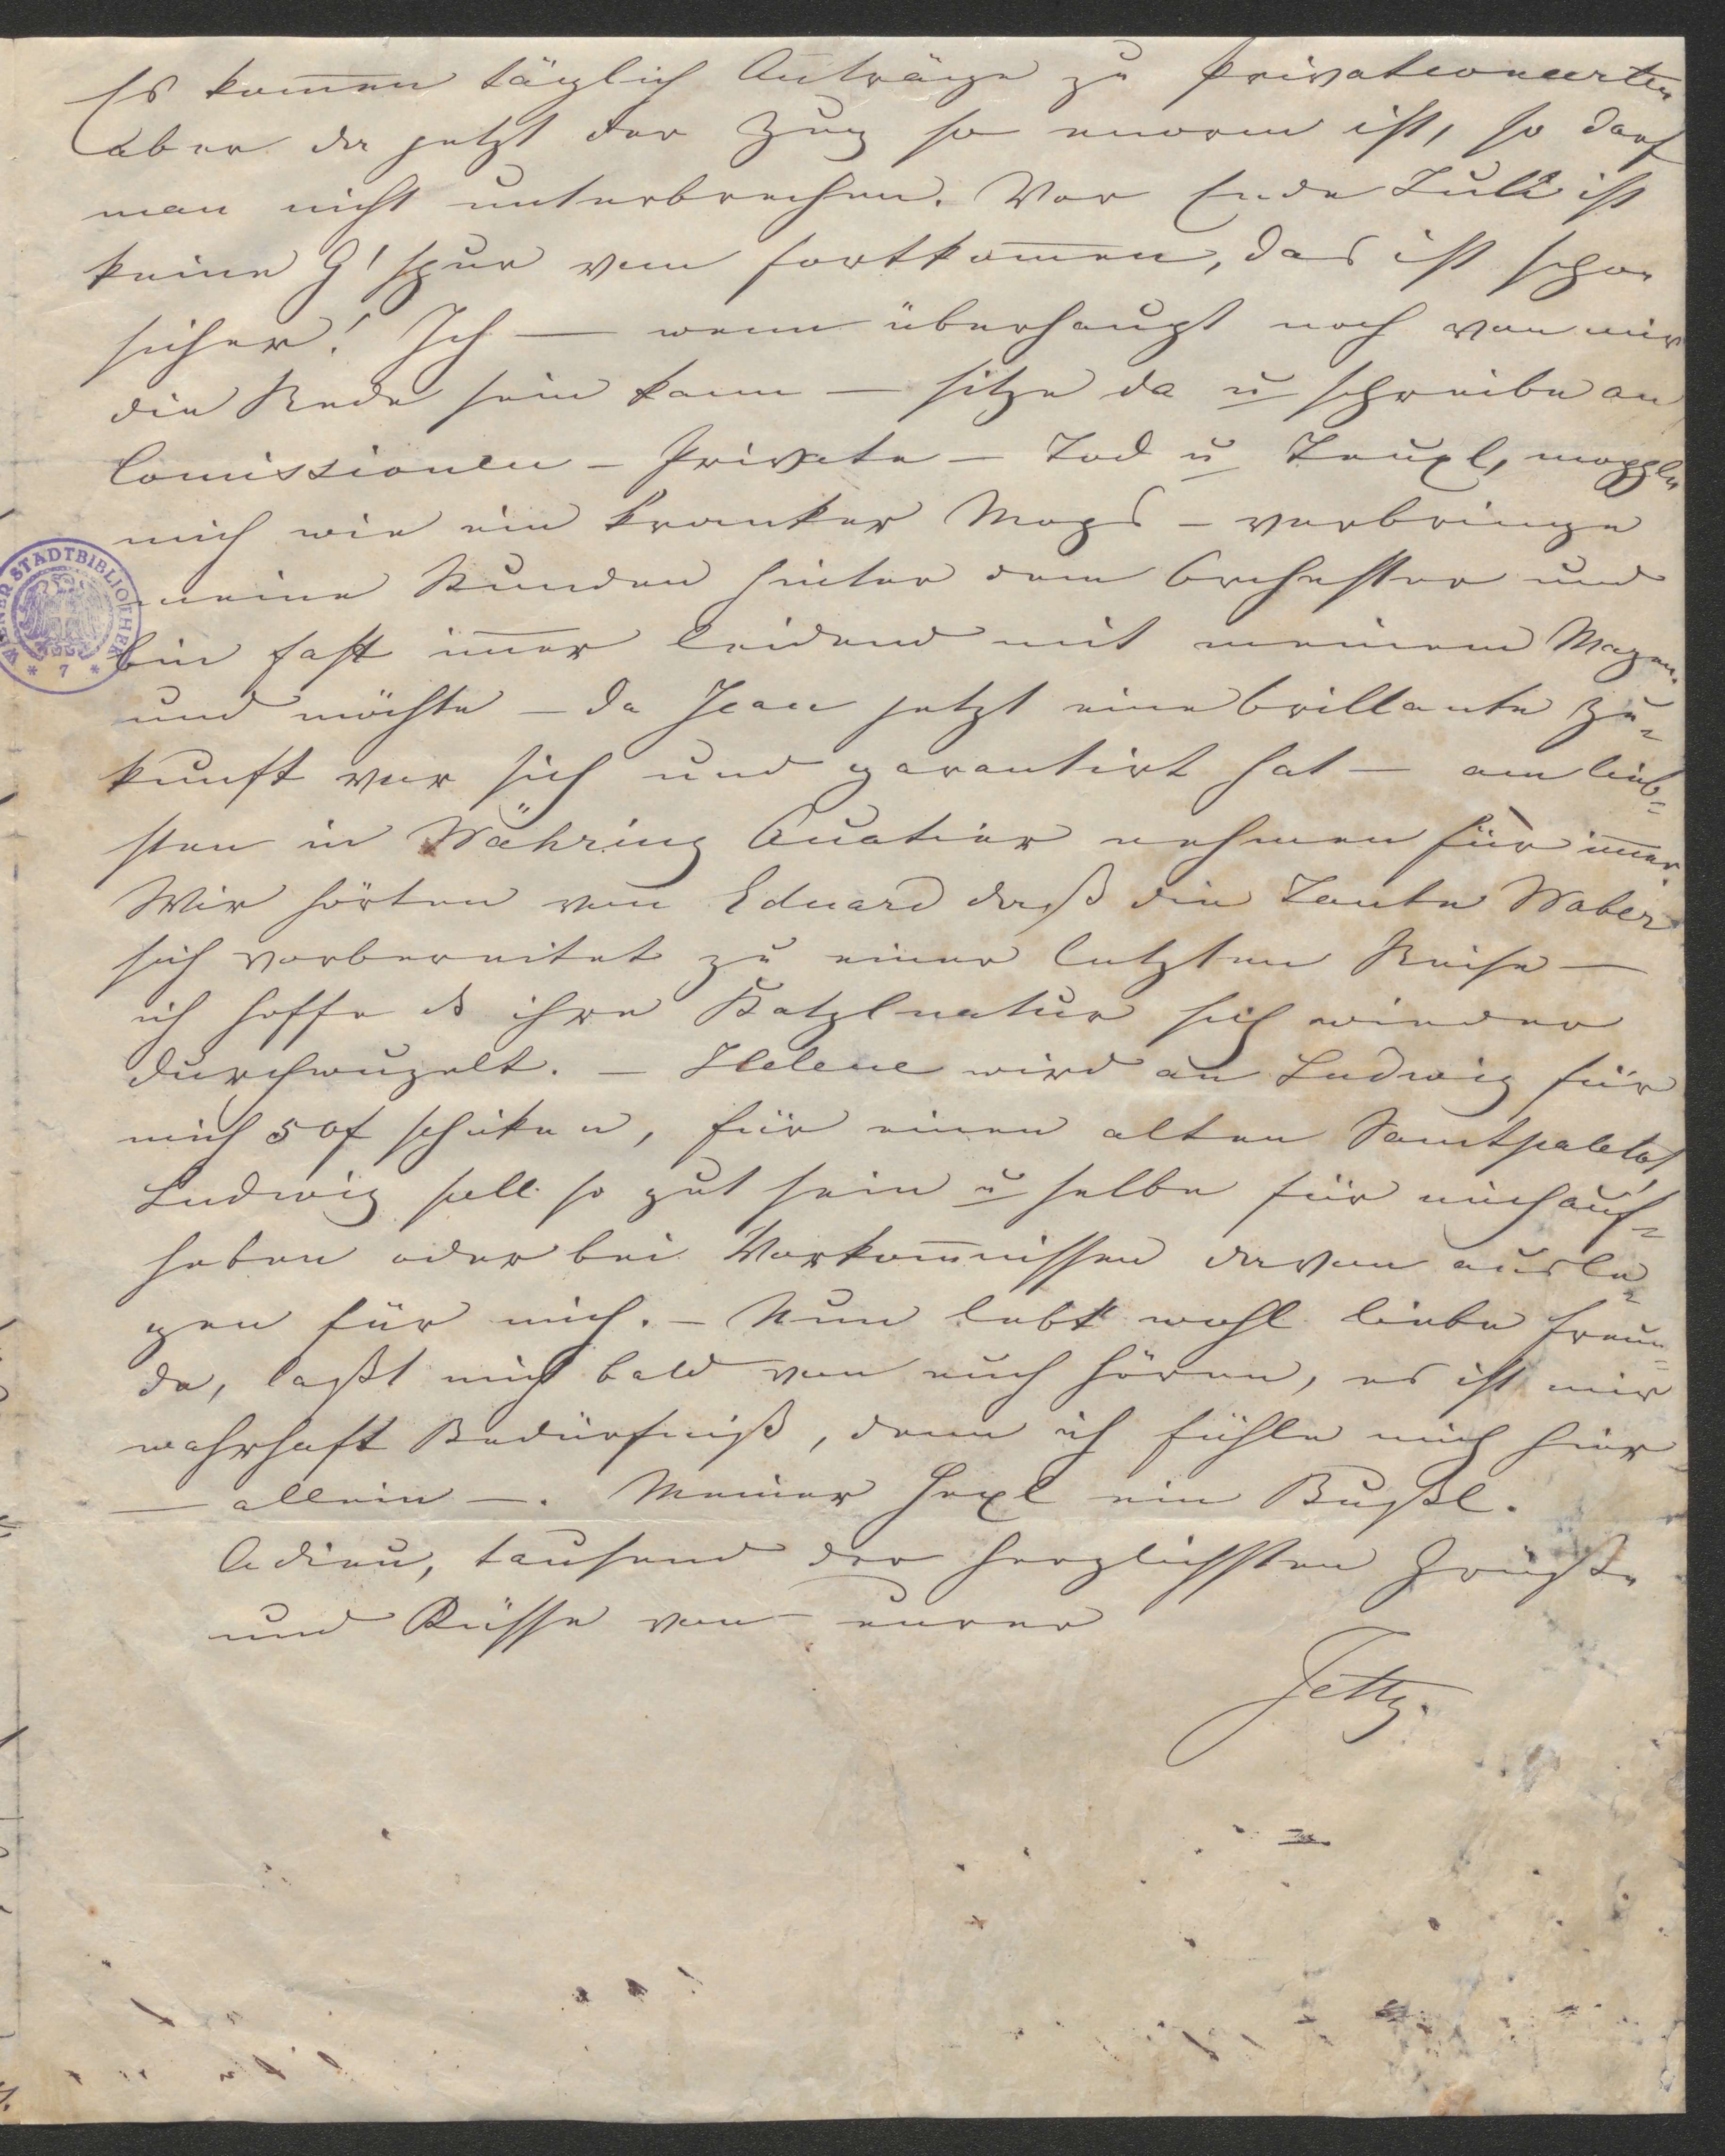 Es kom̅en täglich Anträge zu Privatconcerten
aber da jetzt der Zug so enorm ist, so darf
man nicht unterbrechen. Vor Ende Juli ist
keine G'spur vom fortkom̅en, das ist schon
sicher! Ich — wenn überhaupt noch von mir
die Rede sein kann — sitze da u schreibe an
Com̅issionen – Private – Tod u Teuxl, mopple
mich wie ein kranker Mops – verbringe
meine Stunden hinter dem Orchester und
bin fast im̅er leidend mit meinem Magen.
und möchte – da Jean jetzt eine brillante Zu=
kunft vor sich und garantirt hat — am lieb=
sten in Währing Quatier nehmen für im̅er.
Wir hörten von Eduard daß die Tante Waber
sich vorbereitet zu einer letzten Reise —
ich hoffe ds ihre Katzlnatur sich wieder
durchwuzelt. — Helene wird an Ludwig für
mich 50f schiken, für einen alten Samtpaletot,
Ludwig soll so gut sein u selbe für mich auf=
heben oder bei Vorkom̅nissen davon ausle=
gen für mich. – Nun lebt wohl liebe Freun=
de, laßt mich bald von euch hören, es ist mir
wahrhaft Bedürfniß, denn ich fühle mich hier
— allein —. Meiner Hexl ein Bußl.
Adieu, tausend der herzlichsten Grüße
und Küsse von eurer
Jetty.
WIENER STADTBIBLIOTHEK
* 7 *